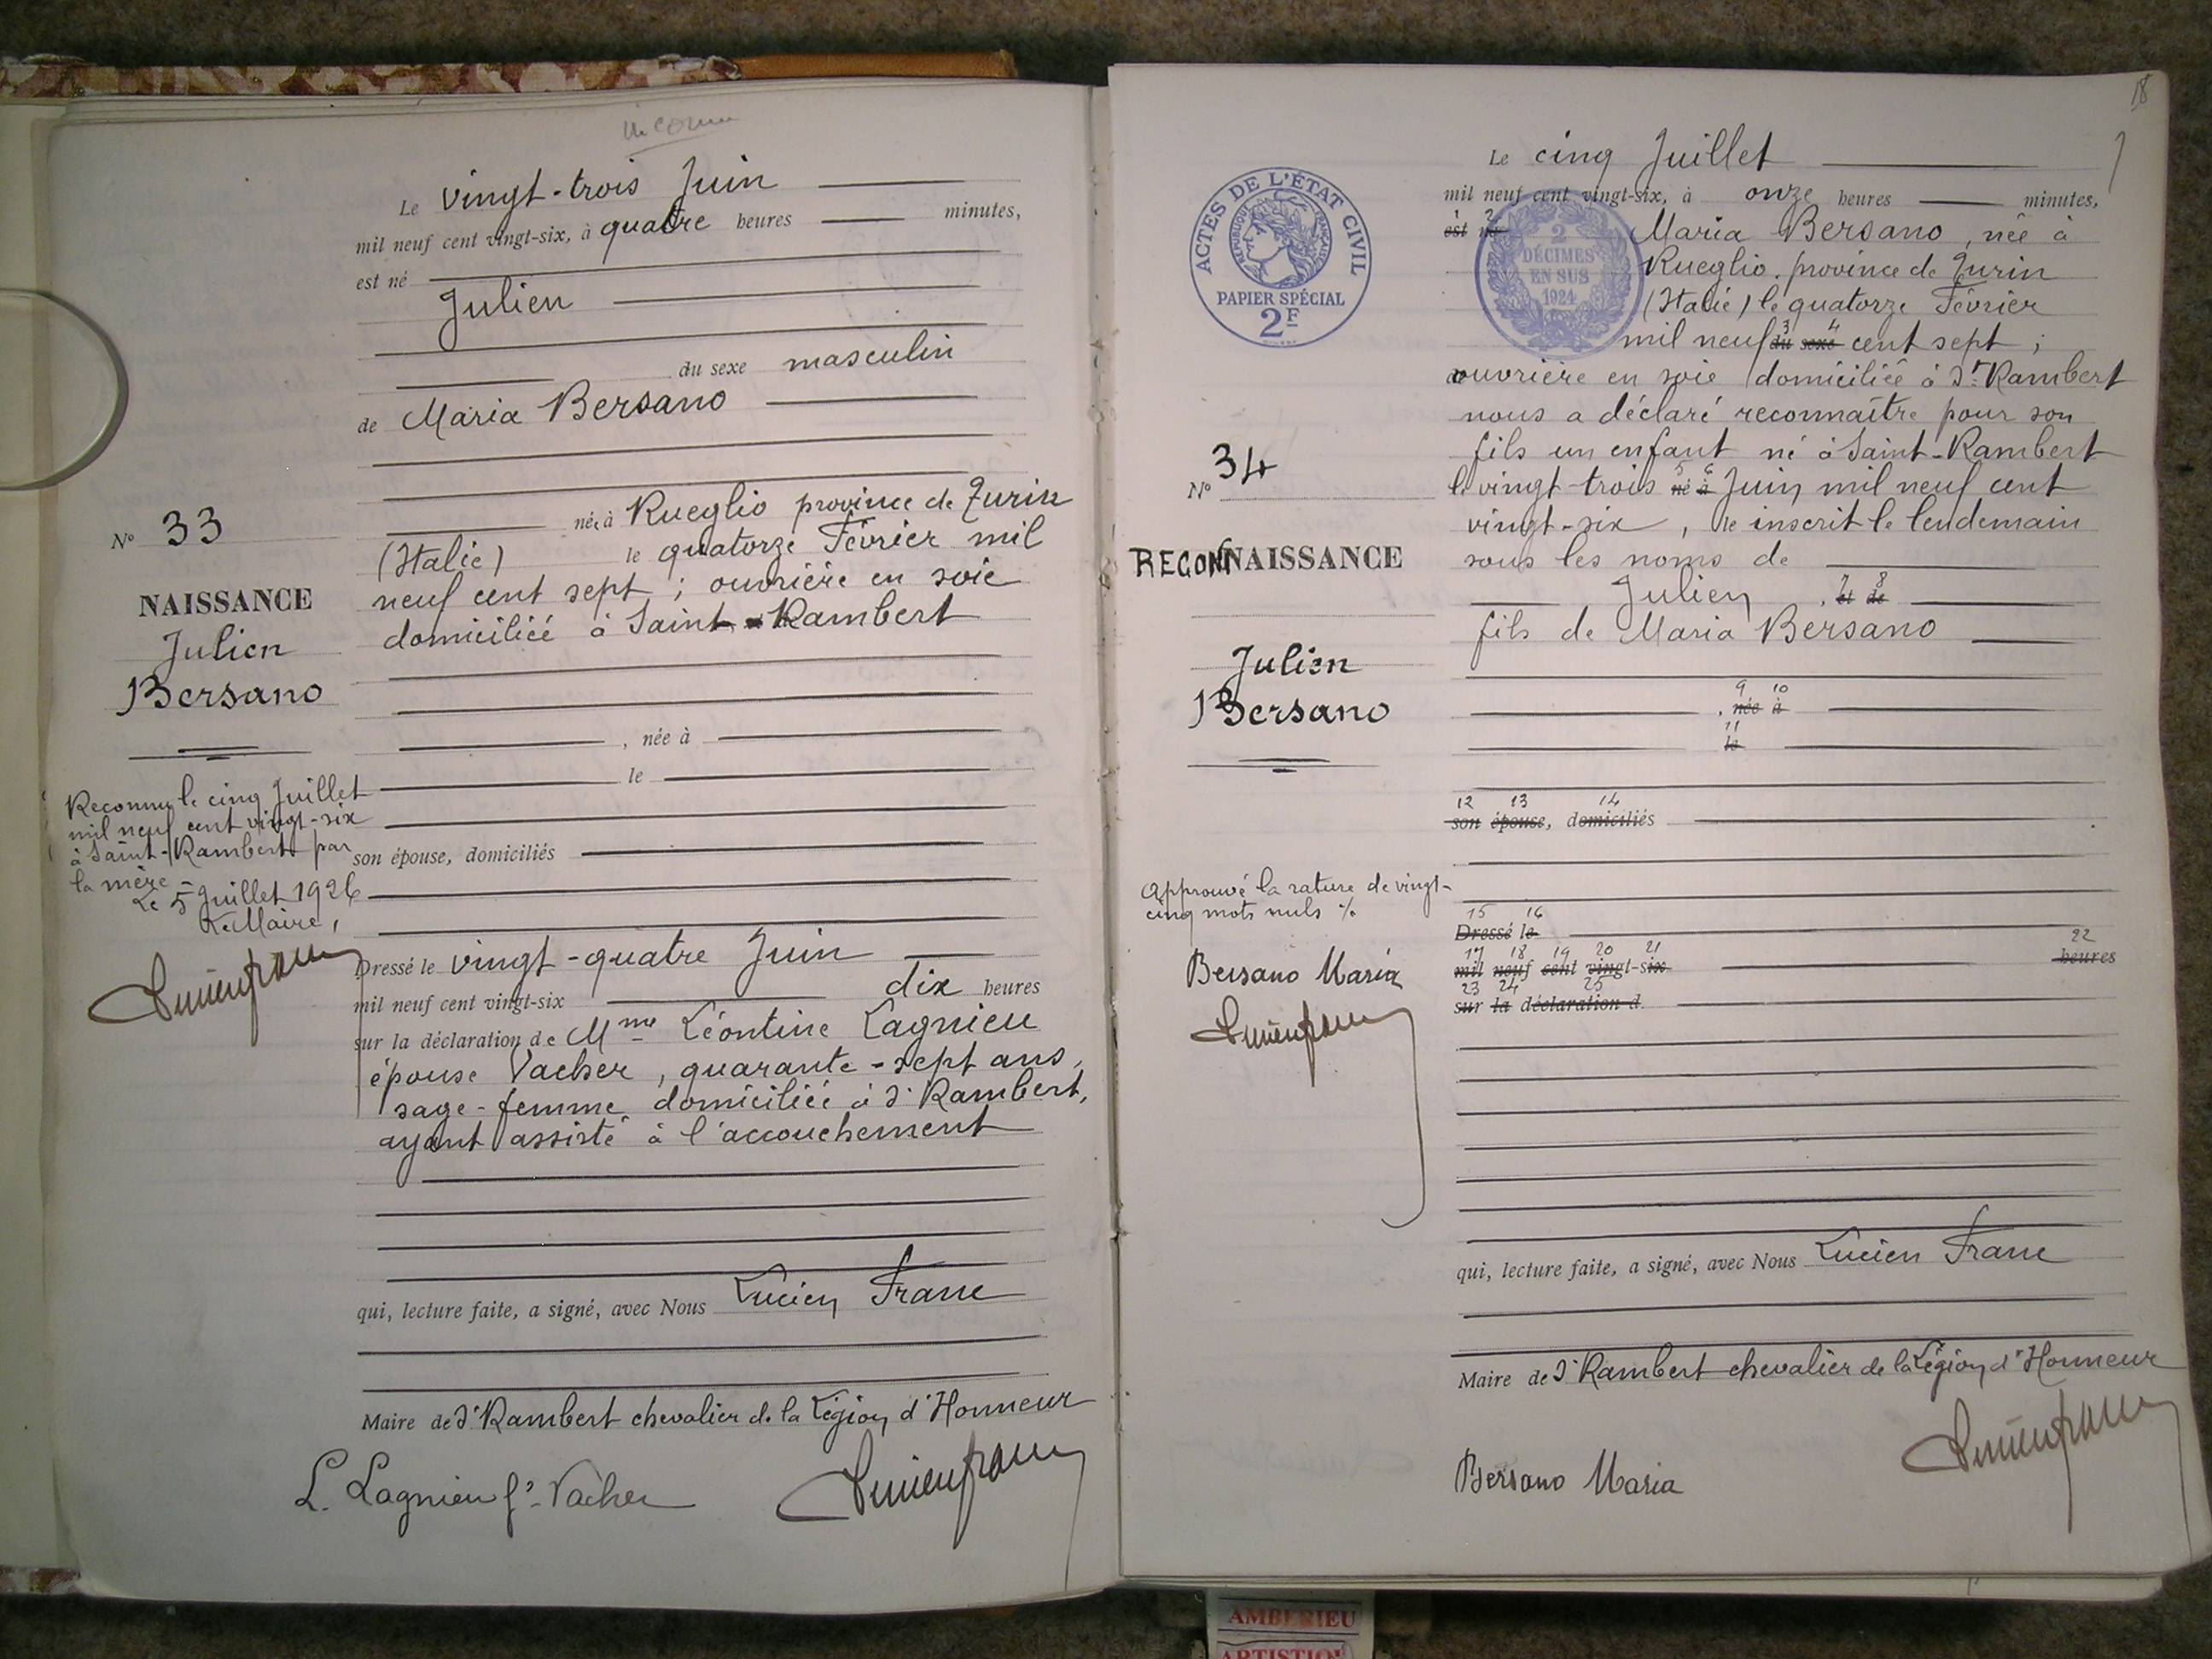 Le vingt-trois Juin
mil neuf cent vingt-six, à quatre heures minutes,
est né
Julien
du sexe masculin
de Maria Bersano
née à Rueglio province de Turin
(Italie) le quatorze Février mil
neuf cent sept ; ouvrière en soie
domiciliée à Saint-Rambert
, née à
le
son épouse, domiciliés
Dressé le vingt-quatre Juin
mil neuf cent vingt-six dix heures
sur la déclaration de Mme Léontine Lagnieu
épouse Vacher, quarante-sept ans,
sage-femme domiciliée à St Rambert,
ayant assisté à l'accouchement
qui, lecture faite, a signé, avec Nous Lucien Franc
Maire de St Rambert chevalier de la Légion d'Honneur
L. Lagnieu f. Vacher
No 33
NAISSANCE
Julien
Bersano
Reconnu le cinq Juillet
mil neuf cent vingt-six
à Saint-Rambert par
la mère -
Le 5 Juillet 1926
Le Maire,
18
Le cinq Juillet
mil neuf cent vingt-six, à onze heures minutes,
est né 2
Maria Bersano, née à
Rueglio, province de Turin
(Italie) le quatorze Février
3 4
mil neuf du sexe cent sept ;
ouvrière en soie domiciliée à St Rambert
nous a déclaré reconnaître pour son
fils un enfant né à Saint-Rambert
5 6
le vingt-trois né à Juin mil neuf cent
vingt-six, et inscrit le lendemain
sous les noms de
7 8
Julien, et de
fils de Maria Bersano
9 10
, née à
11
le
12 13 14
son épouse, domiciliés
15 16
Dressé le
17 18 19 20 21 22
mil neuf cent vingt-six heures
23 24 25
sur la déclaration d
qui, lecture faite, a signé, avec Nous Lucien Franc
Maire de St Rambert chevalier de la Légion d'Honneur
Bersano Maria
ACTES DE L'ÉTAT CIVIL
RÉPUBLIQUE FRANÇAISE
PAPIER SPÉCIAL
2F
2
DÉCIMES
EN SUS
1924
No 34
RECONNAISSANCE
Julien
Bersano
Approuvé la rature de vingt-
cinq mots nuls %
Bersano Maria
AMBERIEU